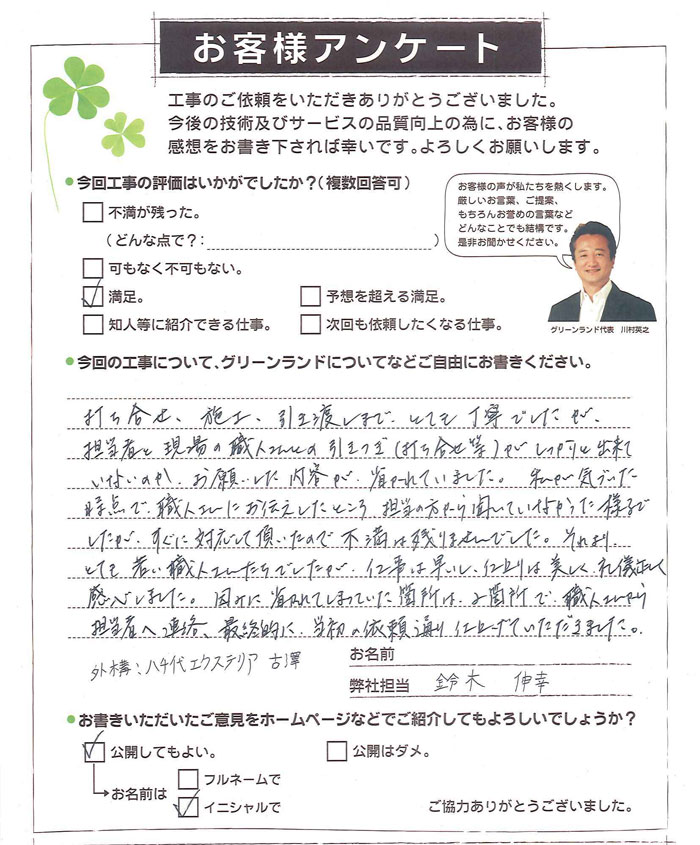 お客様アンケート
工事のご依頼をいただきありがとうございました。
今後の技術及びサービスの品質向上の為に、お客様の
感想をお書き下されば幸いです。よろしくお願いします。
今回工事の評価はいかがでしたか?(複数回答可)
不満が残った。
(どんな点で?: )
可もなく不可もない。
満足。
予想を超える満足。
知人等に紹介できる仕事。
次回も依頼したくなる仕事。
お客様の声が私たちを熱くします。
厳しいお言葉、ご提案、
もちろんお誉めの言葉など
どんなことでも結構です。
是非お聞かせください。
グリーンランド代表 川村英之
今回の工事について、グリーンランドについてなどご自由にお書きください。
打ち合せ、施工、引き渡しまで、とても丁寧でしたが、
担当者と現場の職人さんとの引きつぎ(打ち合せ等)がしっかりと出来て
いないのか、お願いした内容が、省かれていました。私が気づいた
時点で、職人さんにお伝えしたところ担当の方から聞いていなかった様子で
したが、すぐに対応して頂いたので不満は残りませんでした。それより
とても若い職人さんたちでしたが、仕事は早いし、仕上りは美しく、礼儀正しく
感心しました。因みに省かれてしまっていた箇所は、2箇所で、職人さんから
担当者へ連絡、最終的に、当初の依頼通り仕上げていただきました。
外構:八千代エクステリア 古澤
お名前
弊社担当 鈴木 伸幸
お書きいただいたご意見をホームページなどでご紹介してもよろしいでしょうか?
公開してもよい。
公開はダメ。
お名前は
フルネームで
イニシャルで
ご協力ありがとうございました。